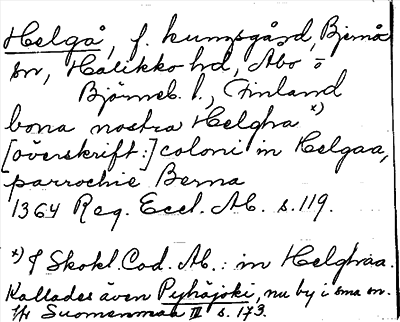 Helgå, f. kungsgård, Bjernå
sn, Halikko hd, Åbo o
Björneb. l., Finland
bona nostra Helgha x)
[överskrift:] coloni in Helgaa,
parrochie Berna
1364 Reg. Eccl. Ab. s. 119.
x) I Skokl. Cod. Ab.: in Helghaa.
Kallades även Pyhäjoki, nu by i sma sn.
Suomenmaa II s. 173.